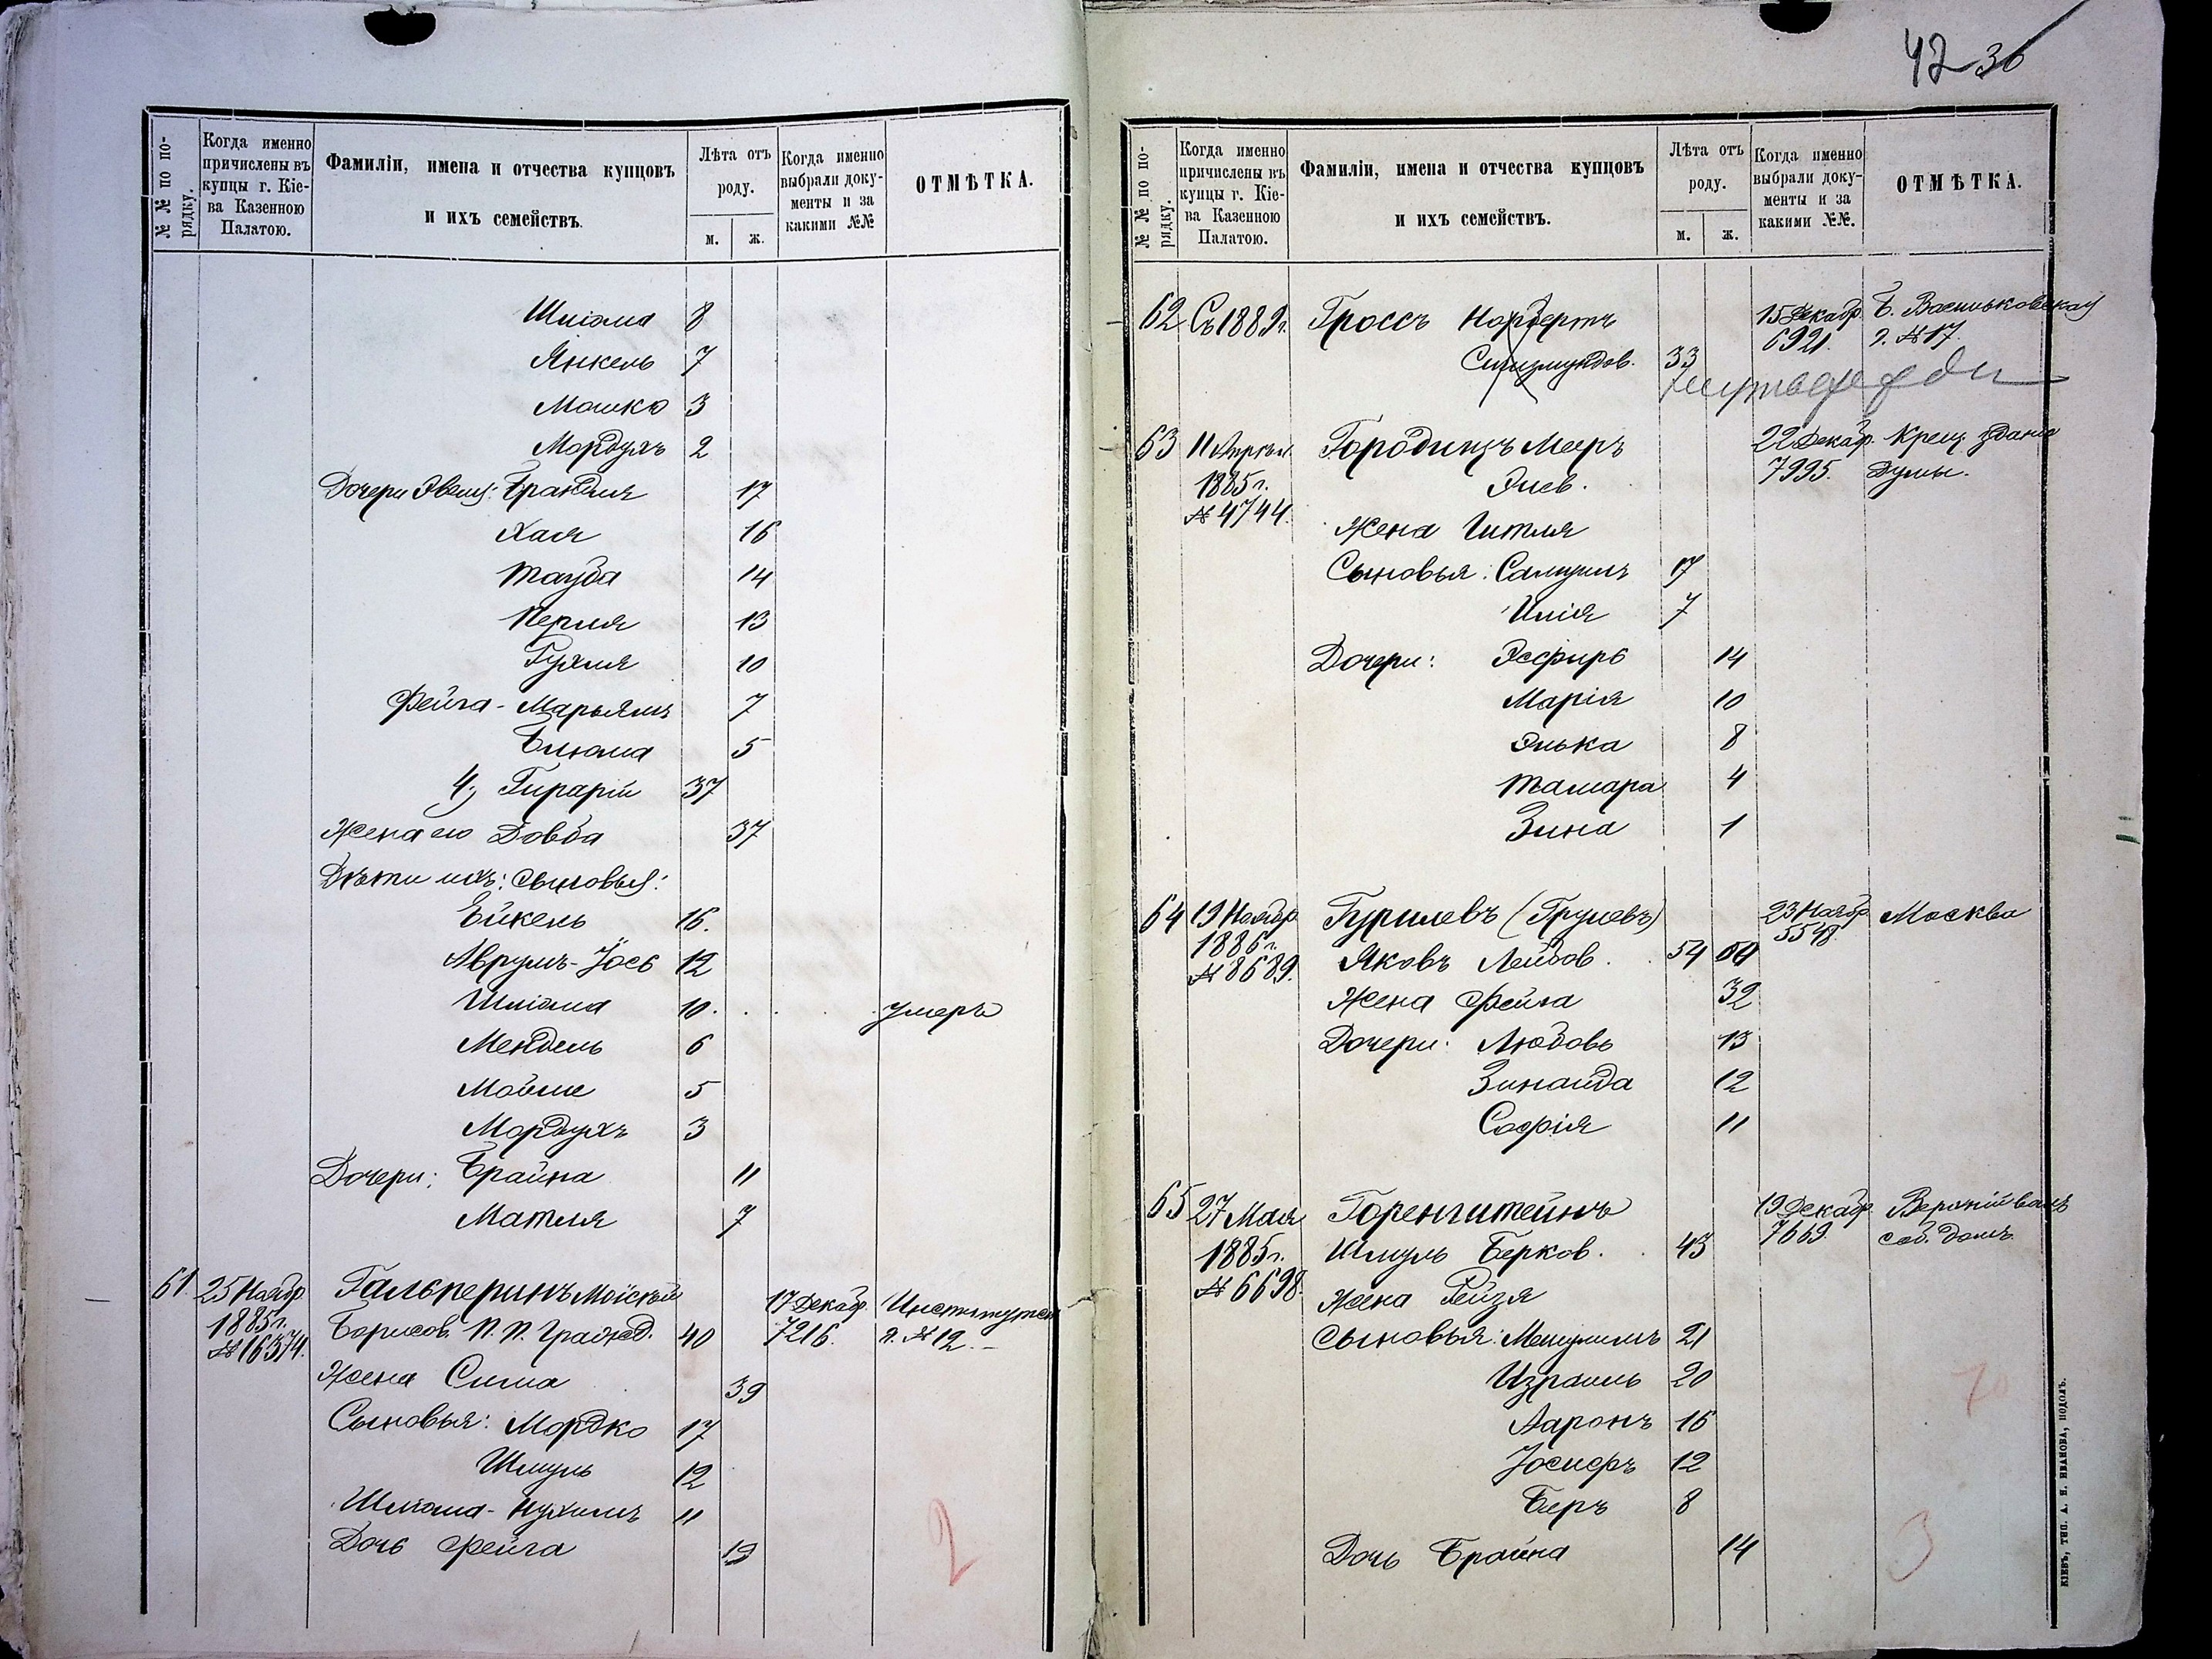 № № по по-
рядку.
Когда именно
причислены въ
купцы г. Кіе-
ва Казенною
Палатою.
Фамиліи, имена и отчества купцовъ
и ихъ семействъ.
Лѣта отъ
роду.
м. ж.
Когда именно
выбрали доку-
менты и за
какими №№
ОТМѢТКА.
Шліома 8
Янкель 7
Мошко 3
Мордухъ 2
Дочери Брандля 17
Хая 16
Тауба 14
Перля 13
Гухля 10
Фейга-Марьямъ 7
Блюма 5
4, 37
Жена его Довба 37
Дѣти ихъ: сыновья:
Ейкель 16.
Аврумъ-Іось 12
Шліома 10. умеръ
Мендель 6
Мойше 5
Мордухъ 3
Дочери: Брайна 11
Матля 7
61. 25 Ноябр. Гальперинъ 17 Декабр.
1885 г. Борисов. П. П. Гражд. 40 7216. д. № 12.
№ 16374.
Жена Сима 39
Сыновья: Мордко 17
Шмуль 12
Шліома-Нухимъ 11
Дочь Фейга 19
2
42 36
№ № по по-
рядку.
Когда именно
причислены въ
купцы г. Кіе-
ва Казенною
Палатою.
Фамиліи, имена и отчества купцовъ
и ихъ семействъ.
Лѣта отъ
роду.
м. ж.
Когда именно
выбрали доку-
менты и за
какими №№.
ОТМѢТКА.
62 Съ 1889 г. Гроссъ Норбертъ 15 Декабр. Б. Васильковская
Сигизмундов. 33 6921. д. № 17.
63 11 Апрѣля Городицъ Мееръ 22 Декабр. Крещ. зданіе
1885 г. Элев. 7995. Думы.
№ 4744. Жена Гитля
Сыновья: Самуилъ 17
Илія 7
Дочери: Эсфирь 14
Марія 10
Элька 8
Тамара 4
Зина 1
64 19 Ноябр. Гурилевъ 23 Ноябр. Москва
1886 г. 5548.
№ 8689. Яковъ Лейбов. 54
Жена Фейга 32
Дочери: Любовь 13
Зинаида 12
Софія 11
65 27 Мая Горенштейнъ 19 Декабр. Верхній валъ
1885 г. Шмуль Берков. 43 7669. соб. домъ.
№ 6698. Жена Рейзя
Сыновья: Менухимъ 21
Израиль 20
Ааронъ 16
Іосифъ 12
Беръ 8
Дочь Брайна 14
3
КІЕВЪ, ТИП. А. Н. ИВАНОВА, ПОДОЛЪ.